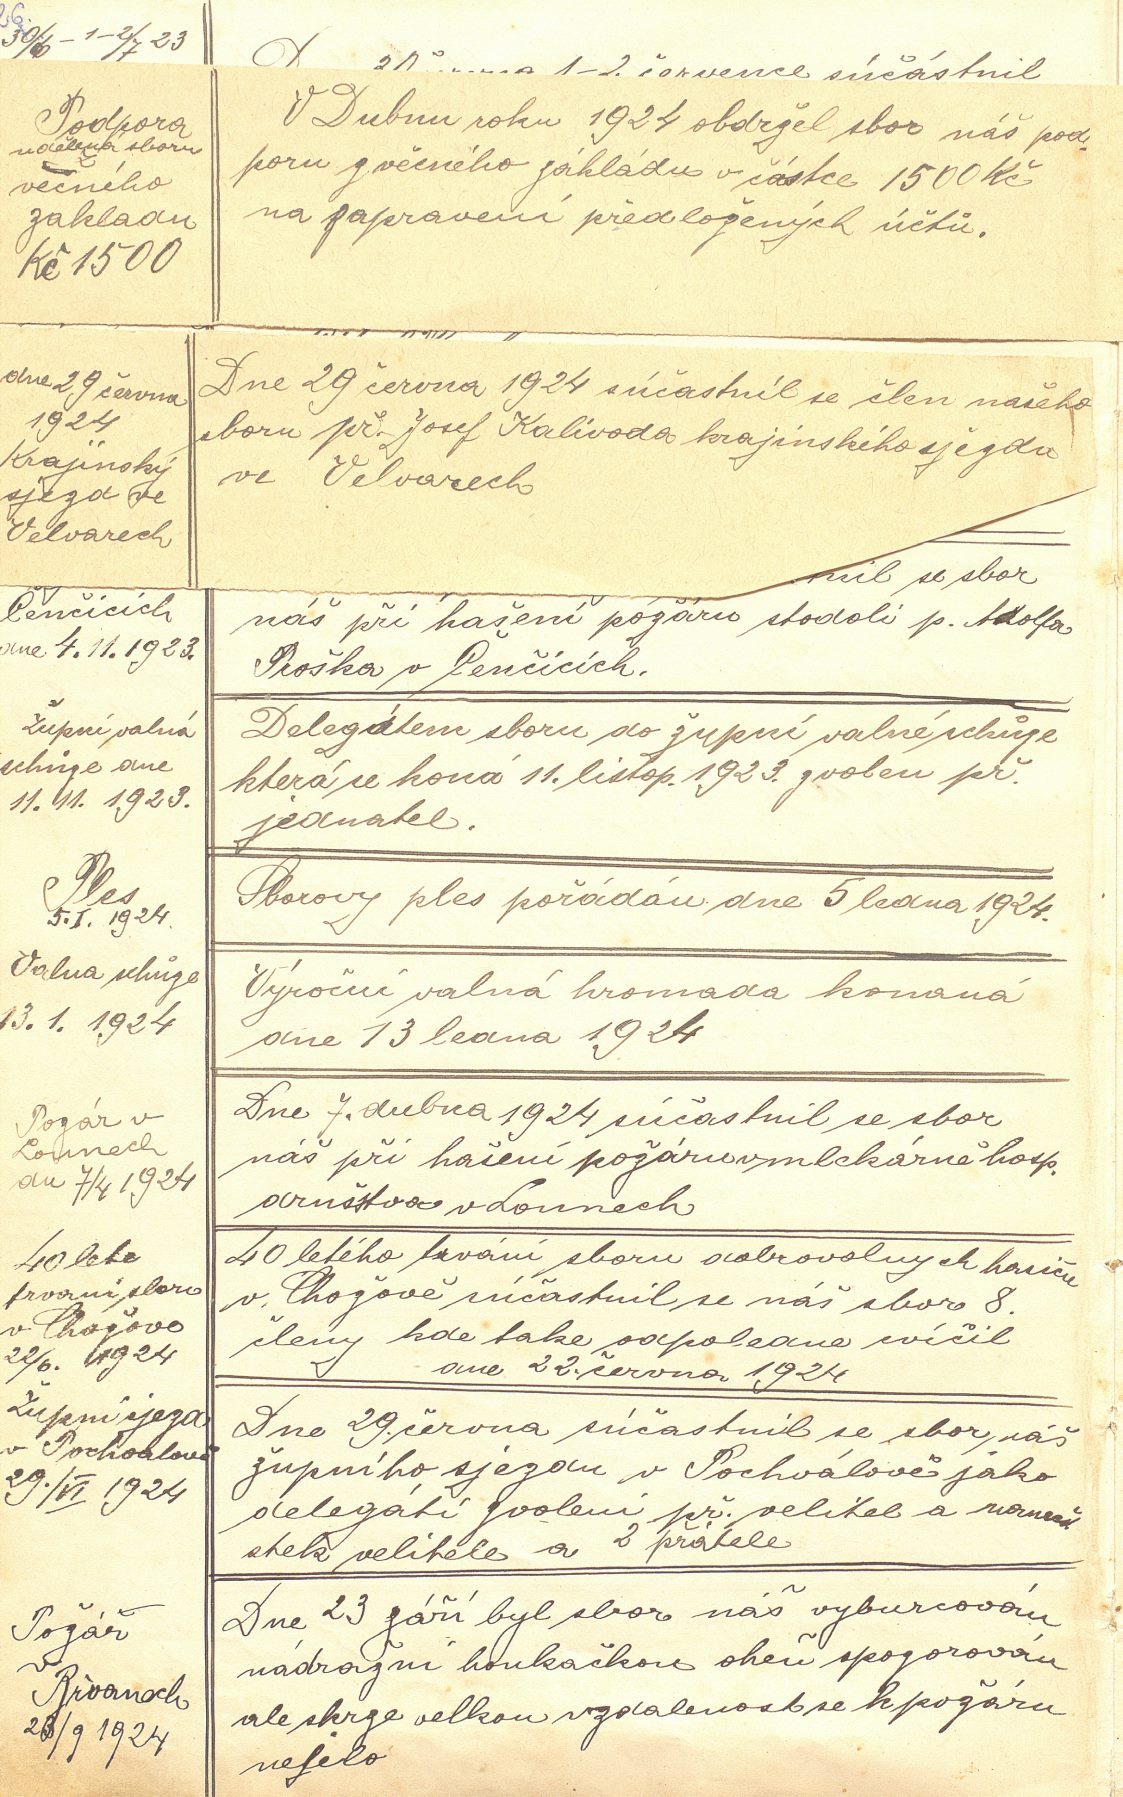 30/6 – 1 – 2/7 23
1–2. července súčástnil
Podpora
udělena sboru
věčného
zakladu
Kč 1500
V Dubnu roku 1924 obdržel sbor náš pod-
poru z věčného základu v částce 1500 Kč
na zapravení předložených účtů.
dne 29 června
1924
Krajinský
sjezd ve
Velvarech
Dne 29 června 1924 súčastnil se člen našeho
sboru př. Josef Kalivoda krajinského sjezdu
ve Velvarech
nil se sbor
Čenčicích
dne 4. 11. 1923.
náš při hašení požáru stodoli p. Adolfa
Proška v Čenčicích.
Župní valná
schůze dne
11. 11. 1923.
Delegátem sboru do župní valné schůze
která se koná 11. listop. 1923. zvolen př.
jednatel.
Ples
5. I. 1924.
Sborovy ples pořádán dne 5 ledna 1924.
Valna schůze
13. 1. 1924
Výroční valná hromada konaná
dne 13 ledna 1924
Požár v
Lounech
dn 7/4 1924
Dne 7. dubna 1924 súčastnil se sbor
náš při hašení požáru v mlekárně hosp.
družstva v Lounech
40 leté
trvani sboru
v Chožově
22/6. 1924
40 letého trváni sboru dobrovolnych hasičů
v. Chožově súčastnil se náš sbor 8.
členy kde take odpoledne cvičil
dne 22. června 1924
Župní sjezd
v Pochvalově
29./VI 1924
Dne 29. června súčastnil se sbor náš
župního sjezdu v Pochválově jako
delegáti zvoleni př. velitel a namest
stek velitele a 2 přátele
Požár
v
Břvanech
23/9 1924
Dne 23 září byl sbor náš vyburcován
nádražní houkačkou oheň spozorován
ale skrze velkou vzdalenost se k požáru
nejelo